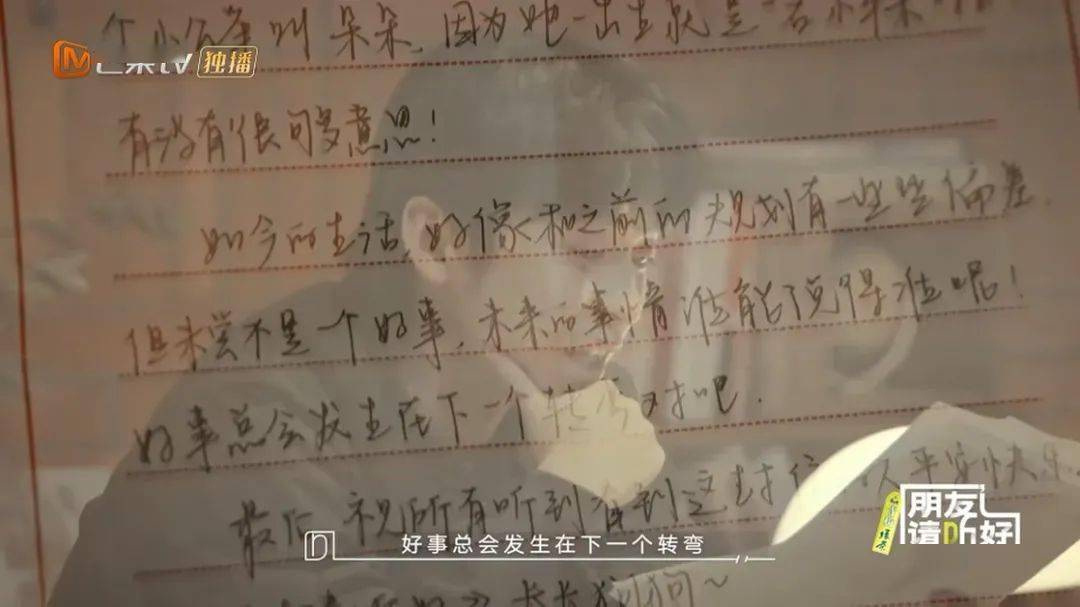 个小名叫朵朵,因为她一出生就是
独播
有没有很有意思!
如今的生活,好像和之前的规划有一些些偏差,
但未尝不是一个好事,未来的事情谁能说得准呢!
好事总会发生在下一个转弯对吧.
最后祝所有听到看到这封信 人平安快乐
好事总会发生在下一个转弯
朋友请听好